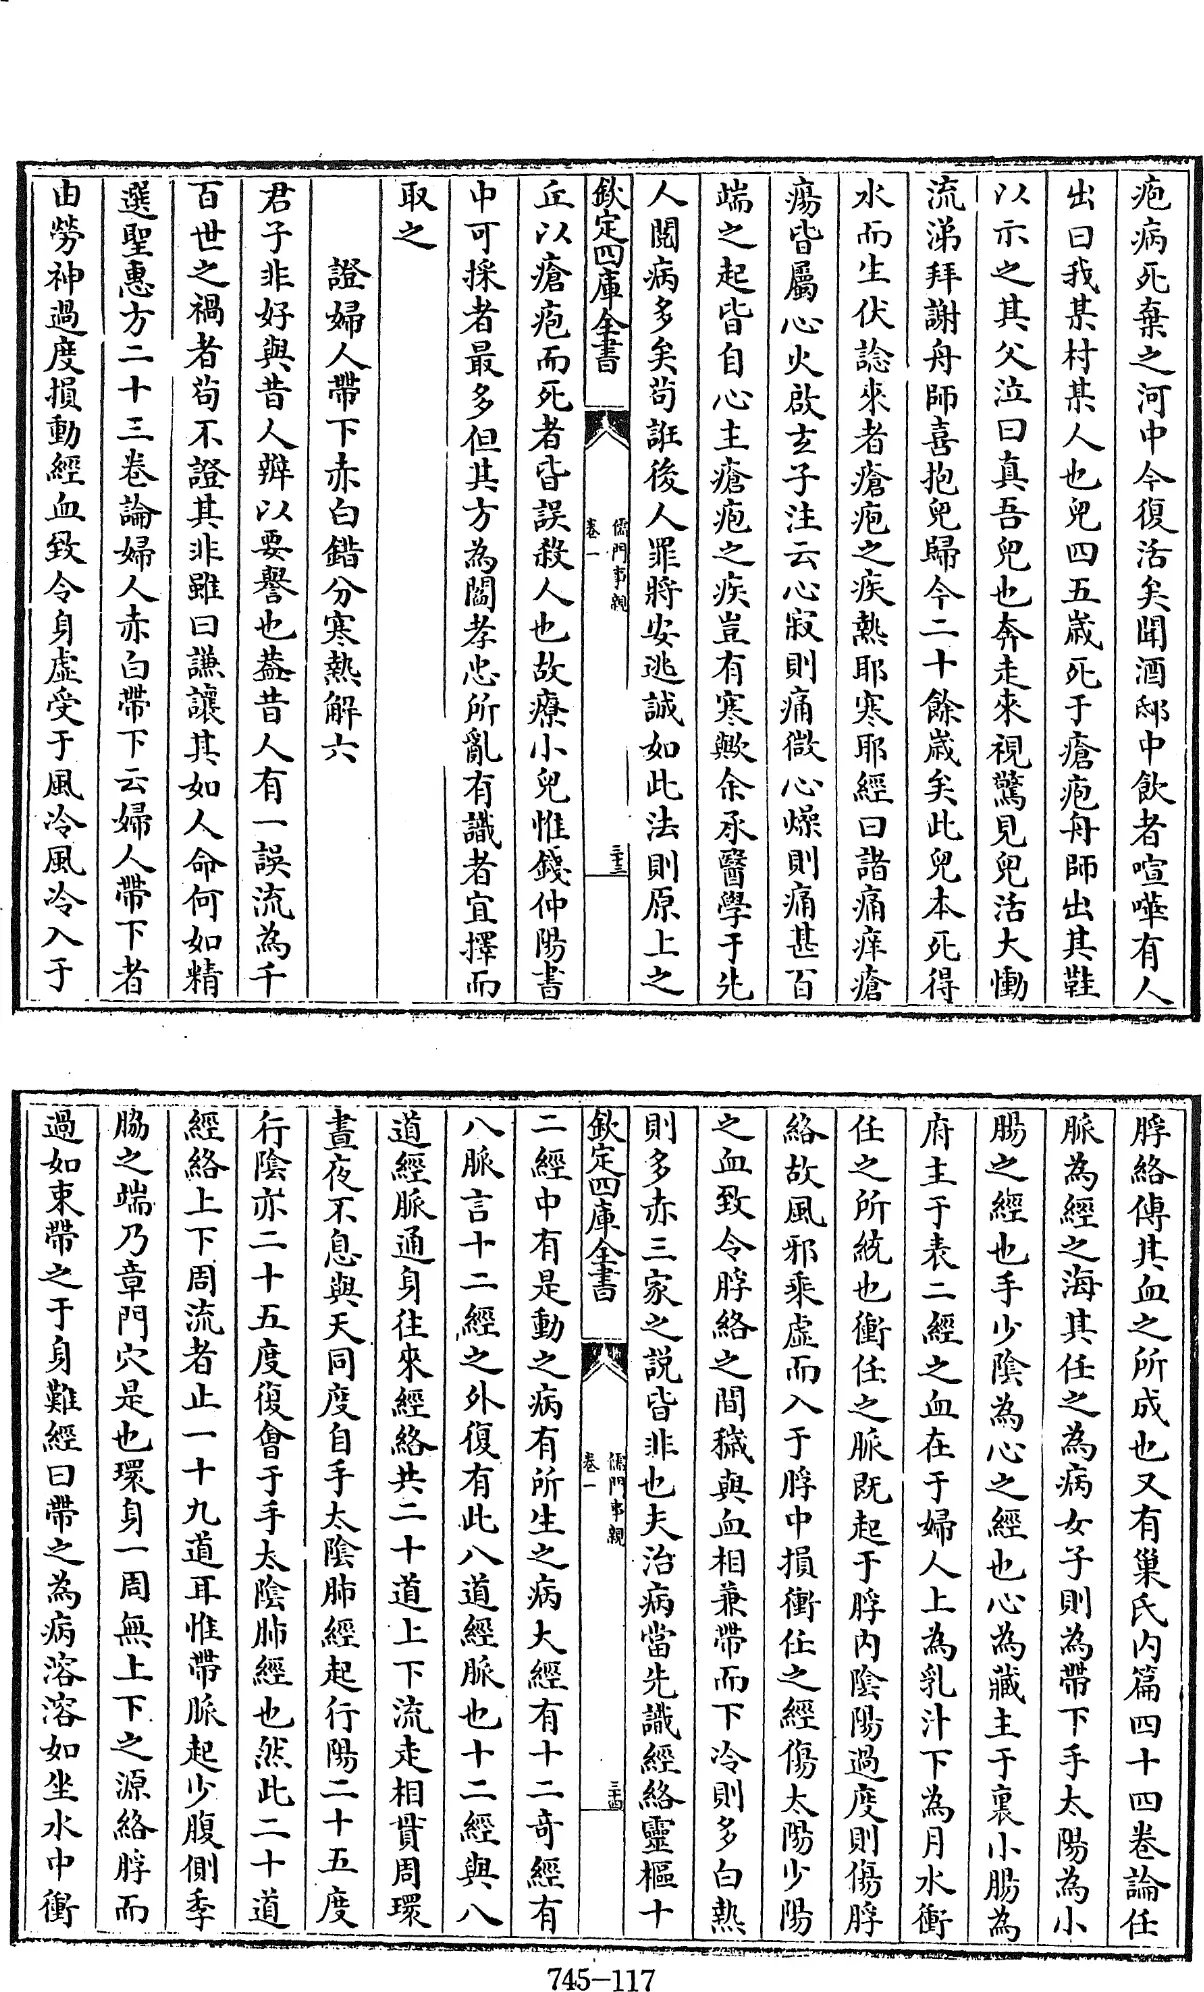 疱病死棄之河中今復活矣聞酒邸中飲者喧嘩有人
出曰我某村某人也兒四五歲死于瘡疱舟師出其鞋
以示之其父泣曰真吾兒也奔走來視驚見兒活大慟
流涕拜謝舟師喜抱兒歸今二十餘歲矣此兒本死得
水而生伏諗來者瘡疱之疾熱耶寒耶經曰諸痛痒瘡
瘍皆屬心火啟玄子注云心寂則痛微心燥則痛甚百
端之起皆自心主瘡疱之疾豈有寒歟余承醫學于先
人閱病多矣苟誑後人罪將安逃誠如此法則原上之
欽定四庫全書
儒門事親
卷一
三十三
丘以瘡疱而死者皆誤殺人也故療小兒惟錢仲陽書
中可採者最多但其方為閻孝忠所亂有識者宜擇而
取之
證婦人帶下赤白錯分寒熱解六
君子非好與昔人辨以要譽也蓋昔人有一誤流為千
百世之禍者苟不證其非雖曰謙讓其如人命何如精
選聖惠方二十三卷論婦人赤白帶下云婦人帶下者
由勞神過度損動經血致令身虛受于風冷風冷入于
脬絡傳其血之所成也又有巢氏內篇四十四卷論任
脈為經之海其任之為病女子則為帶下手太陽為小
腸之經也手少陰為心之經也心為藏主于裏小腸為
府主于表二經之血在于婦人上為乳汁下為月水衝
任之所統也衝任之脈既起于脬內陰陽過度則傷脬
絡故風邪乘虛而入于脬中損衝任之經傷太陽少陽
之血致令脬絡之間穢與血相兼帶而下冷則多白熱
則多赤三家之說皆非也夫治病當先識經絡靈樞十
欽定四庫全書
儒門事親
卷一
三十四
二經中有是動之病有所生之病大經有十二奇經有
八脈言十二經之外復有此八道經脈也十二經與八
道經脈通身往來經絡共二十道上下流走相貫周環
晝夜不息與天同度自手太陰肺經起行陽二十五度
行陰亦二十五度復會于手太陰肺經也然此二十道
經絡上下周流者止一十九道耳惟帶脈起少腹側季
脇之端乃章門穴是也環身一周無上下之源絡脬而
過如束帶之于身難經曰帶之為病溶溶如坐水中衝
745-117